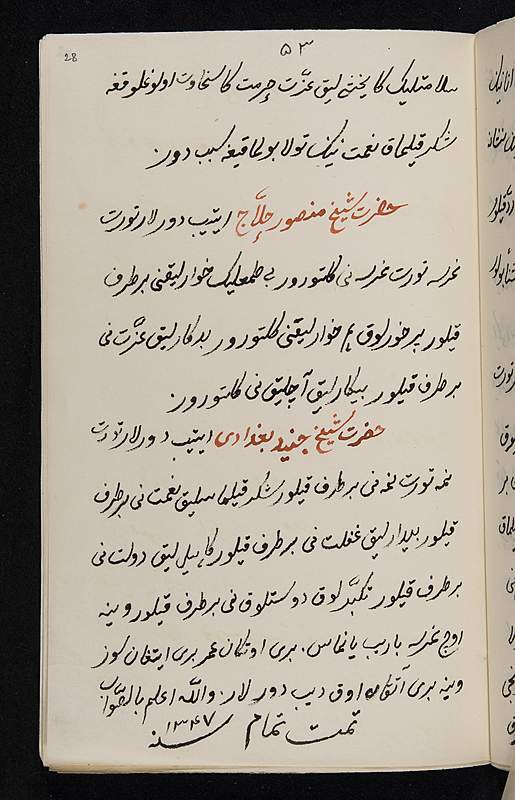 ۵۳
28
سلامتلیک کا یخشی لیق عزّت حرمت کا سخاوت اولوغلوقغه
شکر قیلماق نعمت نینک تولا بولماقیغه سبب دور
حضرت شیخ منصور حلّاج ایتیب دورلار تورت
نرسه تورت نرسه نی کلتورور بی طمعلیک خوارلیقنی برطرف
قیلور بیر خورلوق هم خوارلیقنی کلتورور بدکارلیق عزّت نی
برطرف قیلور بیکارلیق آچلیق نی کلتورور
حضرت شیخ جنید بغدادی ایتیب دورلار تورت
نمه تورت نمه نی برطرف قیلور شکر قیلماسلیق نعمت نی برطرف
قیلور بیدارلیق غفلت نی برطرف قیلور کاهیل لیق دولت نی
برطرف قیلور تکبّرلوق دوستلوق نی برطرف قیلور وینه
اوچ نرسه باریب یانماس بری اوتکان عمر بری ایتغان سوز
وینه بری آتقان اوق دیب دورلار والله اعلم بالصّواب
تمت تمام سنه ۱۳۴۷